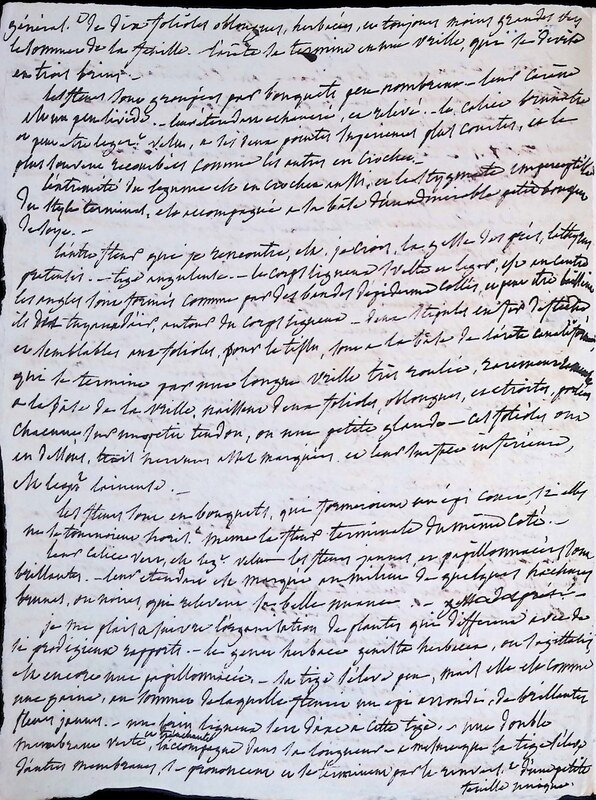 général.t de dix folioles oblongues, herbacées, et toujours moins grandes vers
le sommet de la feuille. - l'arête se termine en une vrille qui se divise
en trois brins. -
les fleurs sont groupées par bouquets peu nombreux - leur carène
est un peu livide. - leur étendard échancré, et relevé. - le calice brunâtre
ou peut être légerᵗ velu, a les deux pointes supérieures plus courtes, et le
plus souvent recourbées comme les autres en crochet. -
l'extrémité du légume est en crochet aussi, et le stygmate imperceptible
du style terminal, est accompagné a la bâse d'un admirable petit bouquet
de soye. -
l'autre fleur que je rencontre, est, je crois, la gesse des prés, lathyrus
pratensis. - tige anguleuse. - le corps ligneux svelte et léger, est au centre
les angles sont formés comme par des bandes d'épiderme collés, et peut être
ils autour du corps ligneux - deux stipules en fer de flèche
et semblables aux folioles, pour le tissu, sont a la bâse de l'arête
qui se termine par une longue vrille très roulée, rarement
a la bâse de la vrille, naissent deux folioles, oblongues, et étroites, portées
chacune sur un petit tendon, ou une petite glande - ces folioles ont
en dessous, trois nervures assez marquées, et leur surface inférieure,
est légerᵗ laineuse. -
les fleurs sont en bouquets, qui formeroient un épi court si elles
ne se tournoient même la fleur terminale du même côté. -
leur calice vert, est légᵗ velu - les fleurs jaunes, et papillonnacées sont
brillantes. - leur étendard est marqué au milieu de quelques hachures
brunes, ou noires, qui relevent sa belle nuance -
je me plais a suivre l'organisation de plantes qui different avec de
si prodigieux rapports. - le genet herbacé genista herbacea, ou sagittalis
est encore une papillonnacée. - sa tige s'élève peu, mais elle est comme
une gaîne, au sommet de laquelle fleurit un épi arrondi, de brillantes
fleurs jaunes. - un corps ligneux sert d'axe a cette tige. - une double
membrane verte et tranchante l'accompagne dans sa longueur - a mesure que la tige s'élève
d'autres membranes, se prononcent et se terminent par le d'une petite
feuille unique.